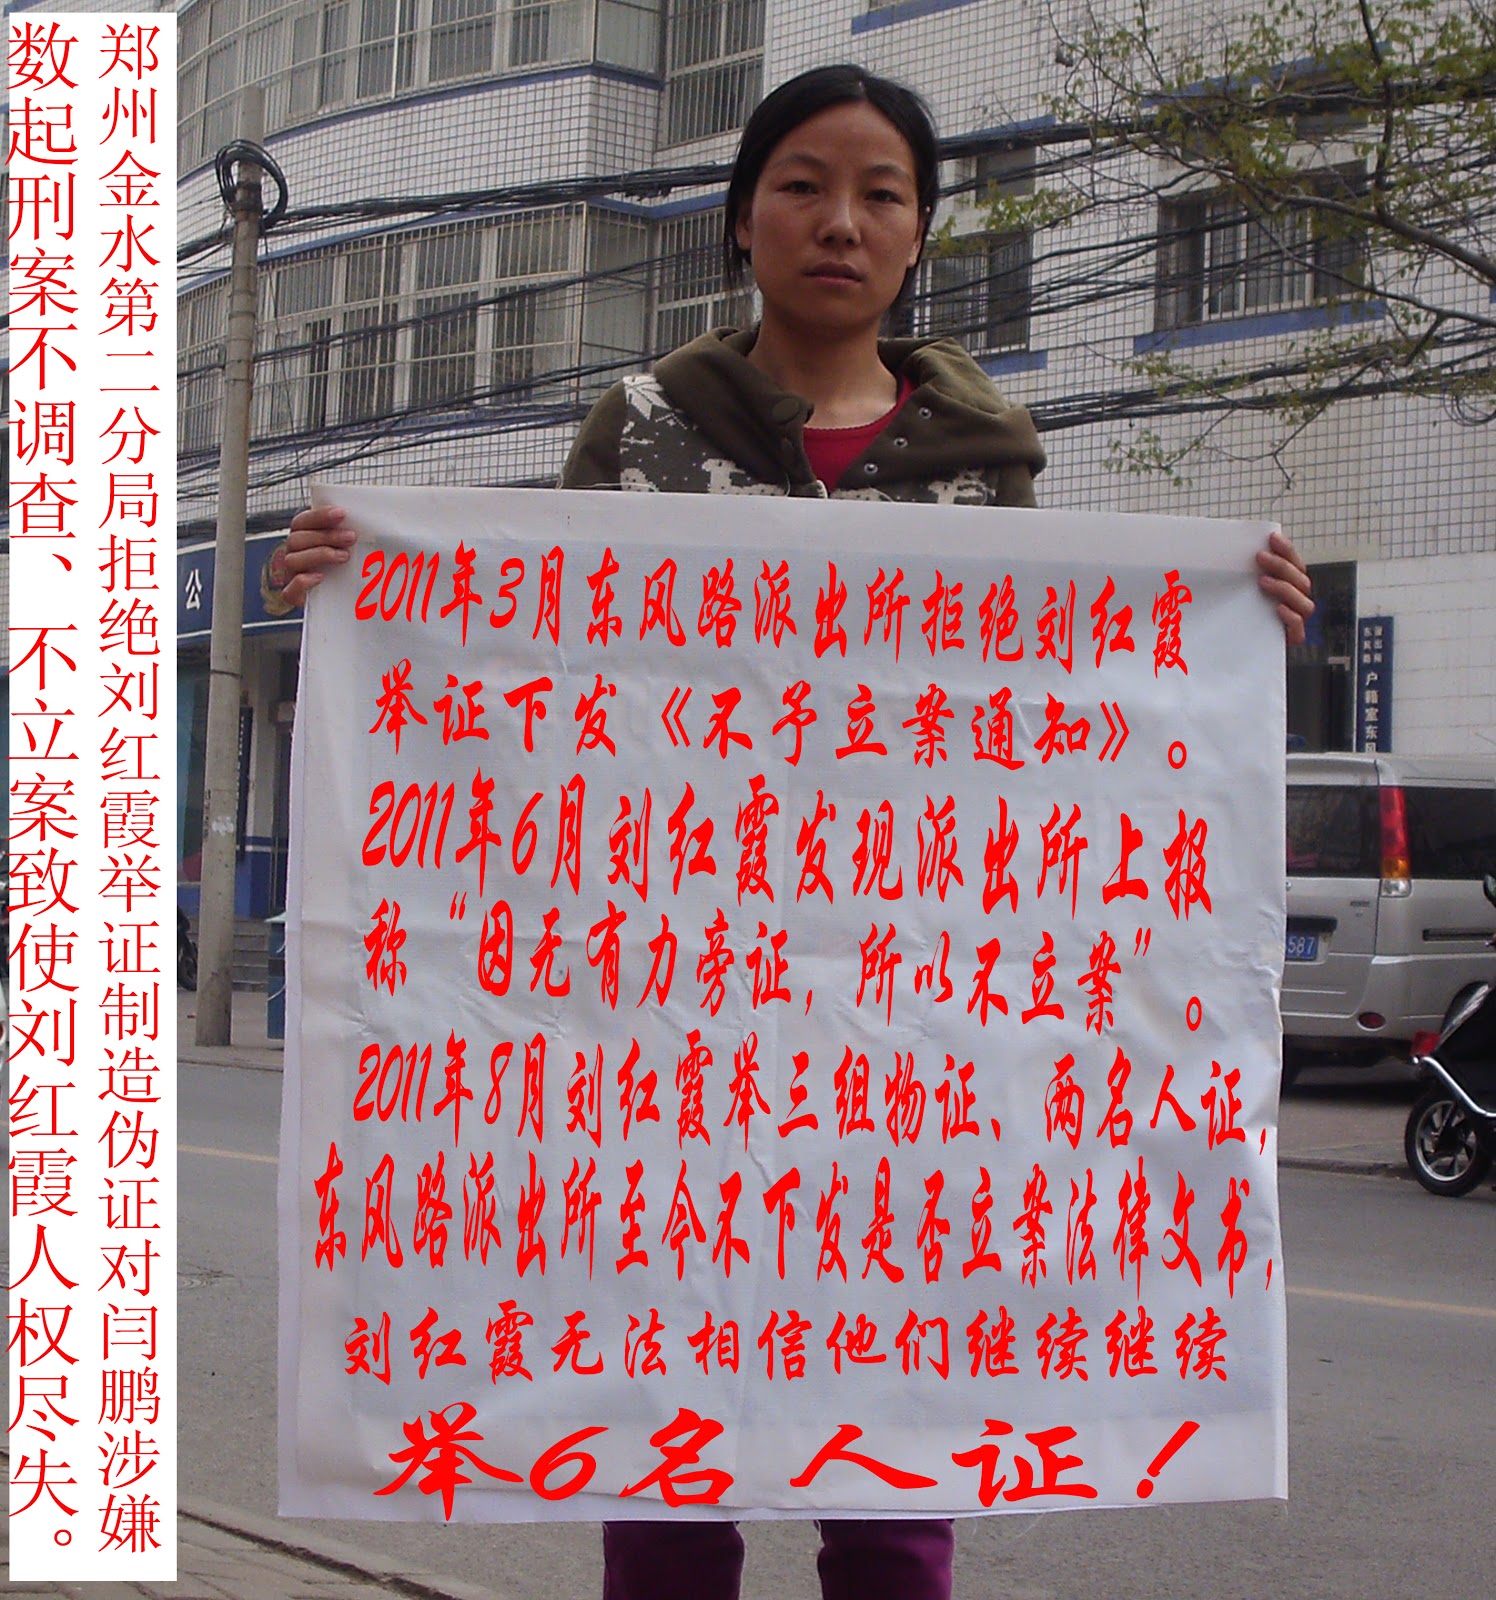 郑州金水第二分局拒绝刘红霞举证制造伪证对闫鹏涉嫌
数起刑案不调查、不立案致使刘红霞人权尽失。
2011年3月东风路派出所拒绝刘红霞
举证下发《不予立案通知》。
2011年6月刘红霞发现派出所上报
称“因无有力旁证，所以不立案”。
2011年8月刘红霞举三组物证、两名人证，
东风路派出所至今不下发是否立案法律文书，
刘红霞无法相信他们继续继续
举6名人证！
公
户籍室
587